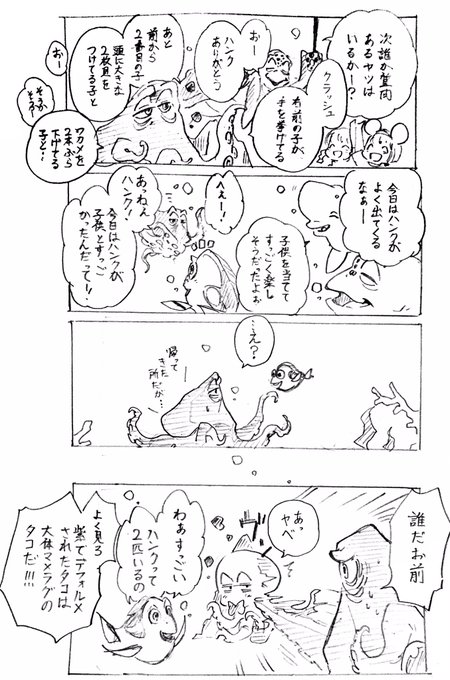 次誰か質問
あるヤツは
いるかー？
クラッシュ
右前の子が
手を挙げてる
おー
ハンク
ありがとう
あと
前から
2番目の子
頭に大きな
2枚貝を
つけてる子と
おー
ワカメを
2本ぶら
下げてる
子と…
そうか
そうか
今日はハンクが
よく出てくる
なぁー
子供を当てて
すっごく楽し
そうだったよぉ
へぇー！
あっねぇ
ハンク！
今日はハンクが
子供とすっご
かったんだって！！
…え？
帰って
きた
所だが…
誰だお前
あっ
ヤベ
わぁすっごい
ハンクって
2匹いるの
よく見ろ
紫でデフォルメ
されたタコは
大体マメラグの
タコだ！！！